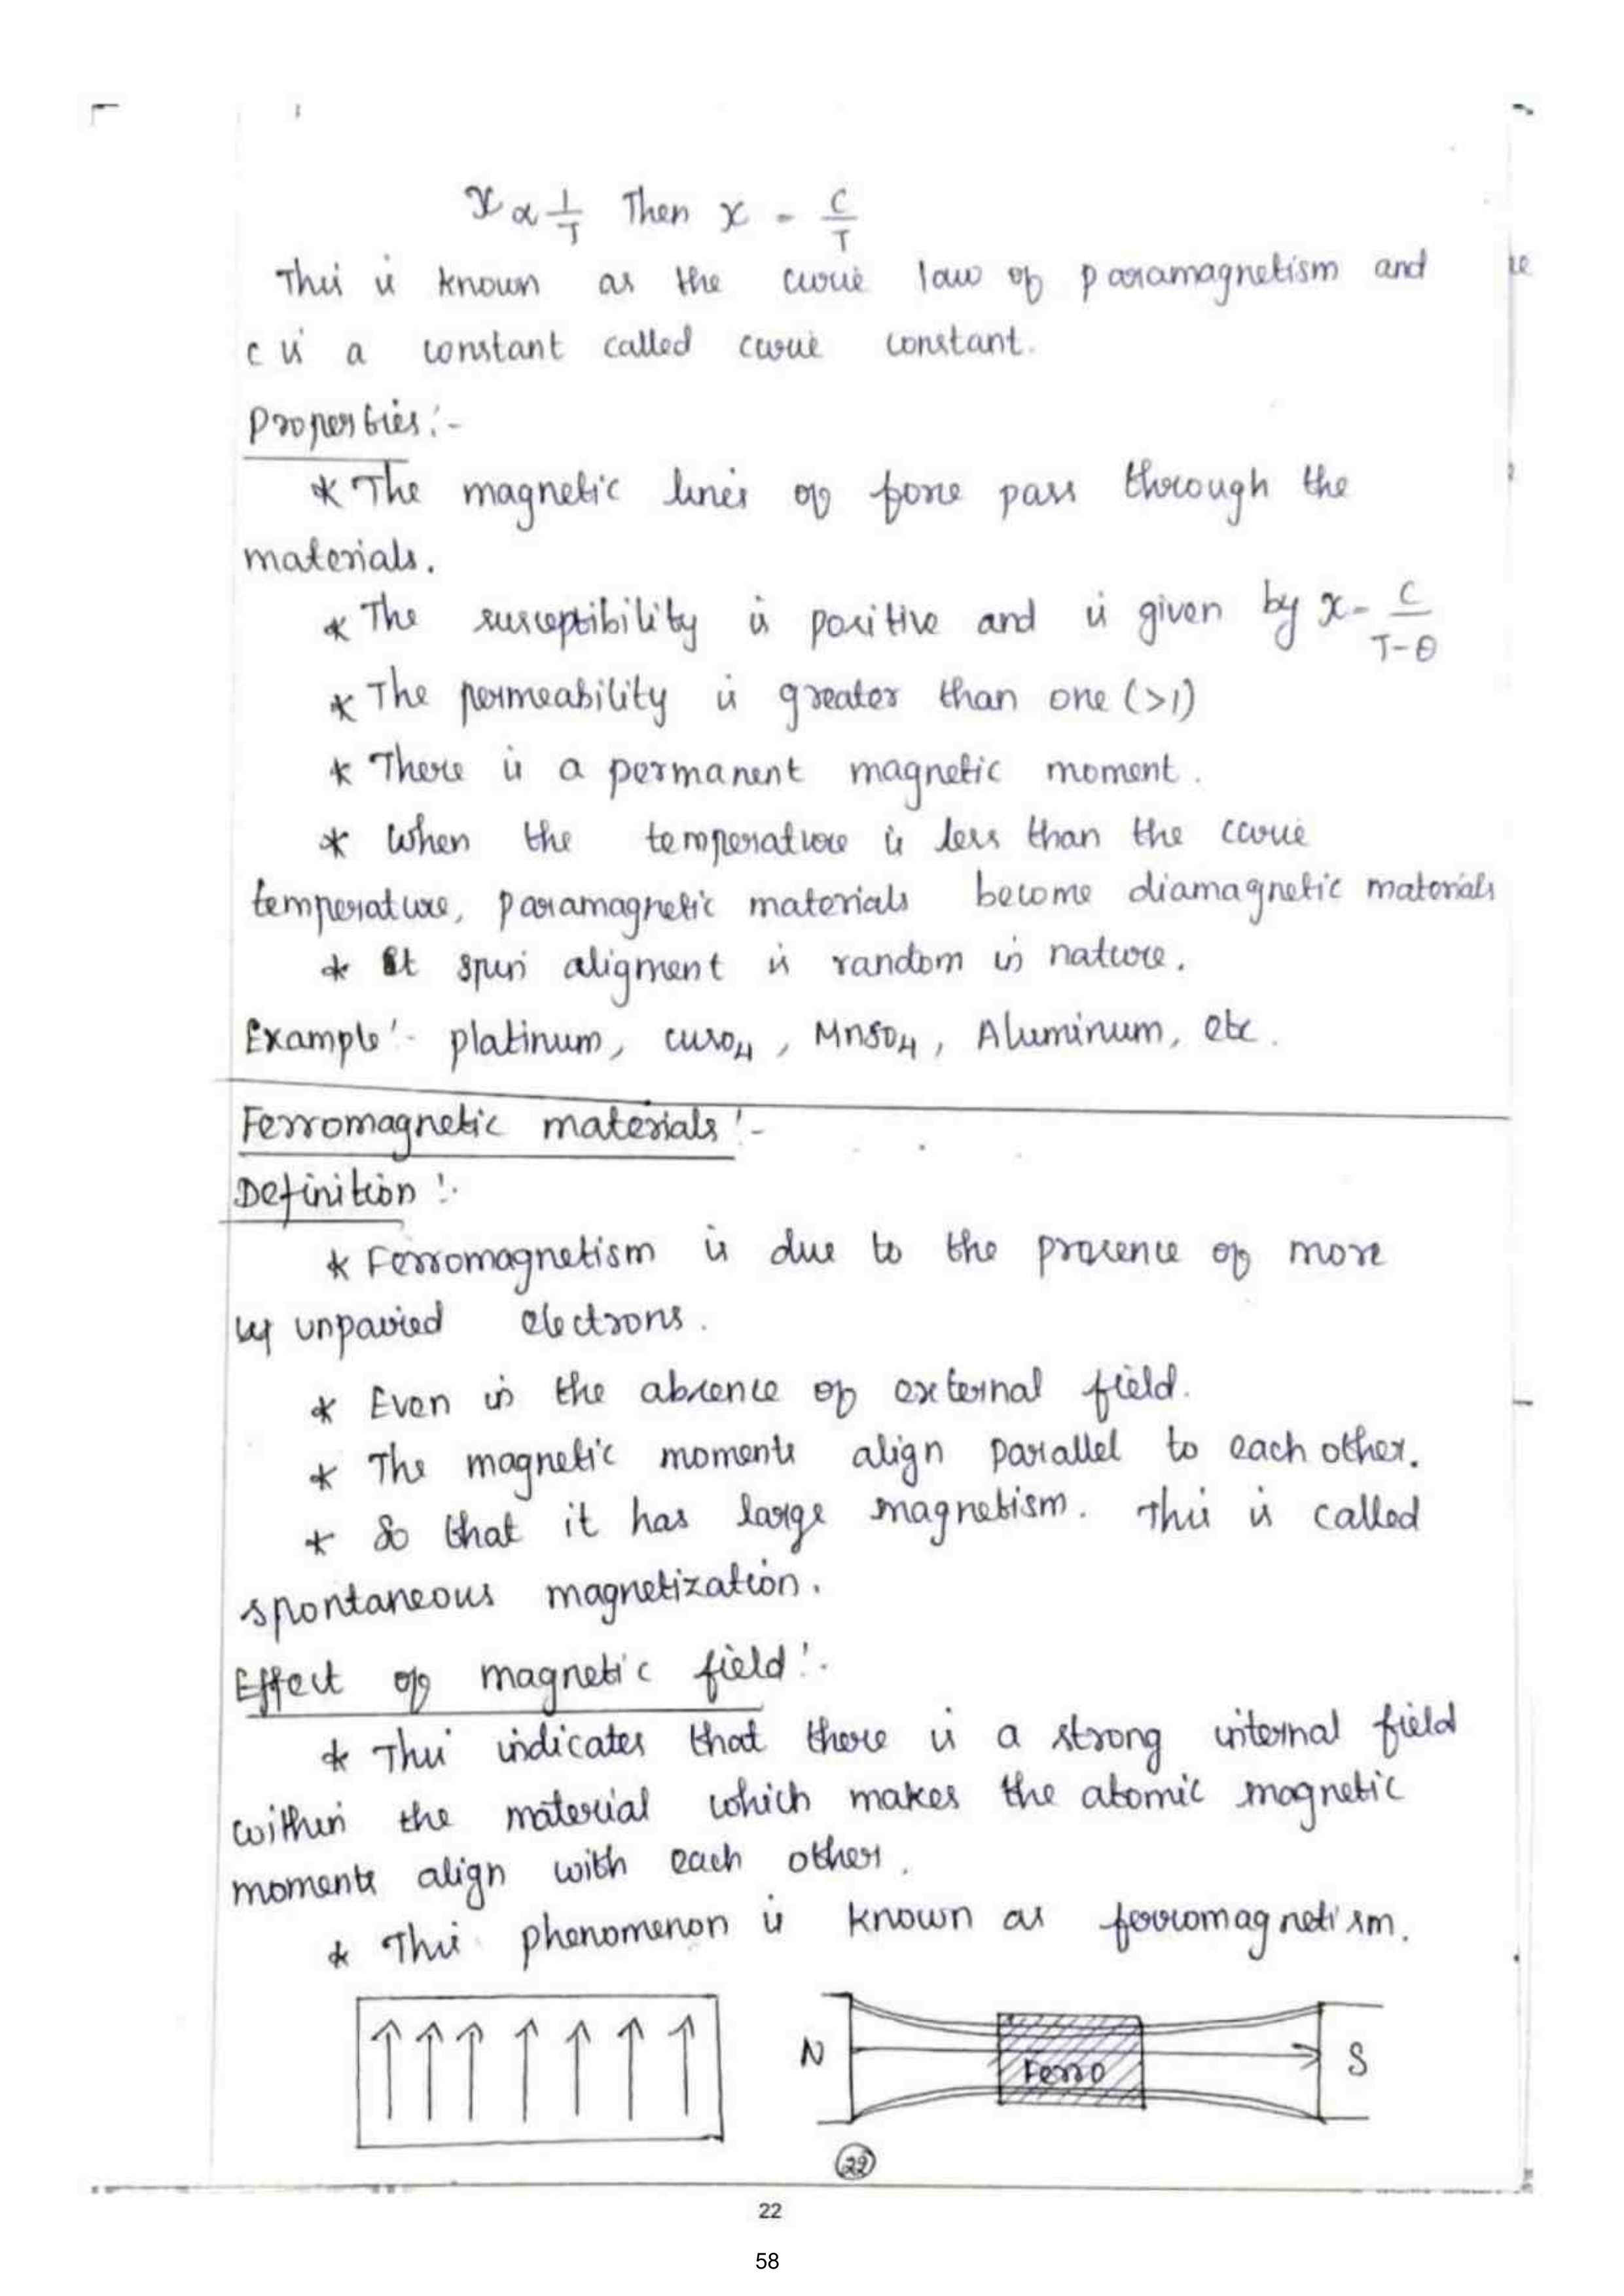 x ∝ 1/T Then x = C/T
This is known as the curie law of paramagnetism and
c is a constant called curie constant.
Properties:-
* The magnetic lines of force pass through the
materials.
* The susceptibility is positive and is given by x = C/T-θ
* The permeability is greater than one (>1)
* There is a permanent magnetic moment.
* When the temperature is less than the curie
temperature, paramagnetic materials become diamagnetic materials
* It spin aligment is random in nature.
Example:- platinum, CuSO4, MnSO4, Aluminum, etc.
Ferromagnetic materials:-
Definition:-
* Ferromagnetism is due to the presence of more
unpaired electrons.
* Even in the absence of external field.
* The magnetic moments align parallel to each other.
* So that it has large magnetism. This is called
spontaneous magnetization.
Effect of magnetic field:-
* This indicates that there is a strong internal field
within the material which makes the atomic magnetic
moments align with each other.
* This phenomenon is known as ferromagnetism.
N Ferro S
22
22
58